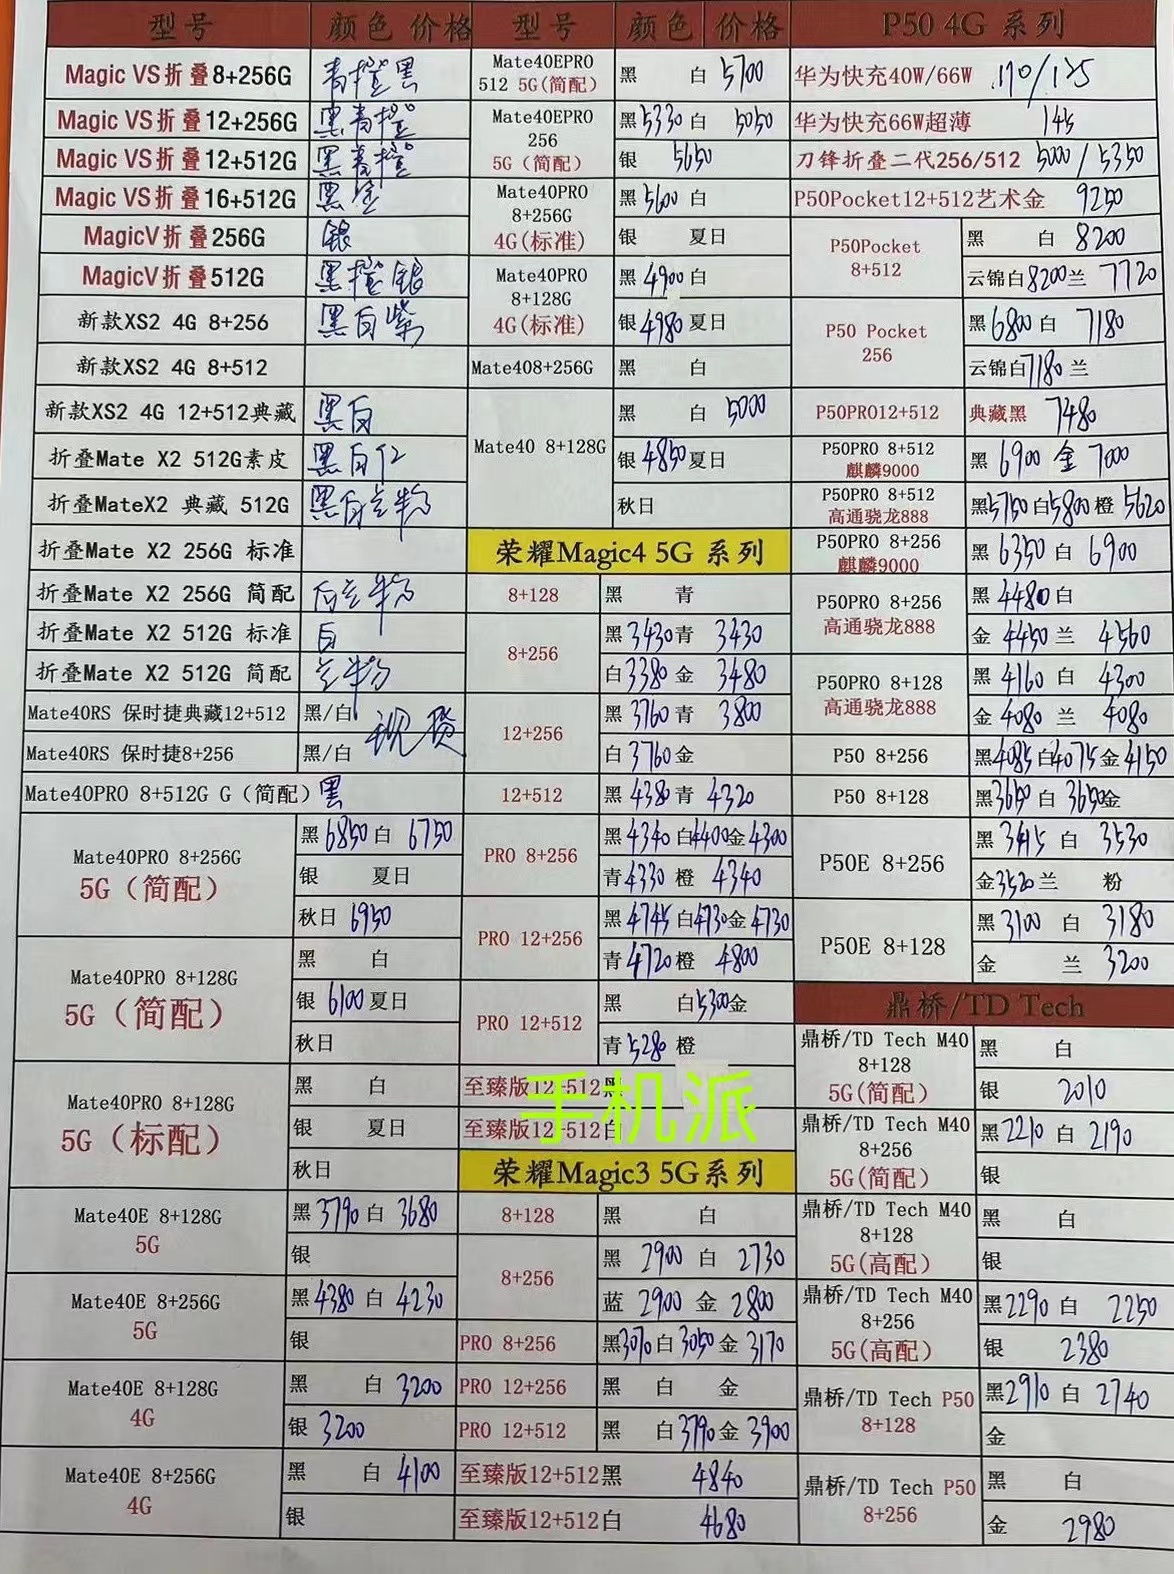 型号 颜色 价格
Magic VS折叠8+256G 青橙黑
Magic VS折叠12+256G 黑青橙
Magic VS折叠12+512G 黑青橙
Magic VS折叠16+512G 黑
MagicV折叠256G 银
MagicV折叠512G 黑橙银
新款XS2 4G 8+256 黑白紫
新款XS2 4G 8+512
新款XS2 4G 12+512典藏 黑白
折叠Mate X2 512G素皮 黑白红
折叠MateX2 典藏 512G 黑白兰粉
折叠Mate X2 256G 标准
折叠Mate X2 256G 简配 白兰粉
折叠Mate X2 512G 标准 白
折叠Mate X2 512G 简配 兰粉
Mate40RS 保时捷典藏12+512 黑/白
现货
Mate40RS 保时捷8+256 黑/白
Mate40PRO 8+512G G（简配） 黑
Mate40PRO 8+256G
5G（简配）
黑 6850 白 6750
银 夏日
秋日 6950
Mate40PRO 8+128G
5G（简配）
黑 白
银 6100 夏日
秋日
Mate40PRO 8+128G
5G（标配）
黑 白
银 夏日
秋日
Mate40E 8+128G
5G
黑 3790 白 3680
银
Mate40E 8+256G
5G
黑 4380 白 4230
银
Mate40E 8+128G
4G
黑 白 3200
银 3200
Mate40E 8+256G
4G
黑 白 4100
银
型号 颜色 价格
Mate40EPRO
512 5G(简配)
黑 白 5700
Mate40EPRO
256
5G（简配）
黑 5330 白 5050
银 5650
Mate40PRO
8+256G
4G(标准)
黑 5600 白
银 夏日
Mate40PRO
8+128G
4G(标准)
黑 4900 白
银 4980 夏日
Mate408+256G 黑 白
Mate40 8+128G
黑 白 5000
银 4850 夏日
秋日
荣耀Magic4 5G 系列
8+128 黑 青
8+256
黑 3430 青 3430
白 3380 金 3480
12+256
黑 3760 青 3800
白 3760 金
12+512 黑 4380 青 4320
PRO 8+256
黑 4340 白 4400 金 4300
青 4330 橙 4340
PRO 12+256
黑 4745 白 4730 金 4730
青 4720 橙 4800
PRO 12+512
黑 白 5300 金
青 5280 橙
至臻版12+512黑
手机派
至臻版12+512白
荣耀Magic3 5G系列
8+128 黑 白
8+256
黑 2900 白 2730
蓝 2900 金 2800
PRO 8+256 黑 3070 白 3050 金 3170
PRO 12+256 黑 白 金
PRO 12+512 黑 白 3790 金 3900
至臻版12+512黑 4840
至臻版12+512白 4680
P50 4G 系列
华为快充40W/66W 110/125
华为快充66W超薄 145
刀锋折叠二代256/512 5000/5350
P50Pocket12+512艺术金 9250
P50Pocket
8+512
黑 白 8200
云锦白 8200 兰 7720
P50 Pocket
256
黑 6800 白 7180
云锦白 7180 兰
P50PRO12+512 典藏黑 7480
P50PRO 8+512
麒麟9000
黑 6900 金 7000
P50PRO 8+512
高通骁龙888
黑 5750 白 5800 橙 5620
P50PRO 8+256
麒麟9000
黑 6350 白 6900
P50PRO 8+256
高通骁龙888
黑 4480 白
金 4450 兰 4560
P50PRO 8+128
高通骁龙888
黑 4160 白 4300
金 4080 兰 4080
P50 8+256 黑 4085 白 4075 金 4150
P50 8+128 黑 3650 白 3650 金
P50E 8+256
黑 3415 白 3530
金 3520 兰 粉
P50E 8+128
黑 3100 白 3180
金 兰 3200
鼎桥/TD Tech
鼎桥/TD Tech M40
8+128
5G(简配)
黑 白
银 2010
鼎桥/TD Tech M40
8+256
5G(简配)
黑 2210 白 2190
银
鼎桥/TD Tech M40
8+128
5G(高配)
黑 白
银
鼎桥/TD Tech M40
8+256
5G(高配)
黑 2290 白 2250
银 2380
鼎桥/TD Tech P50
8+128
黑 2910 白 2740
金
鼎桥/TD Tech P50
8+256
黑 白
金 2980